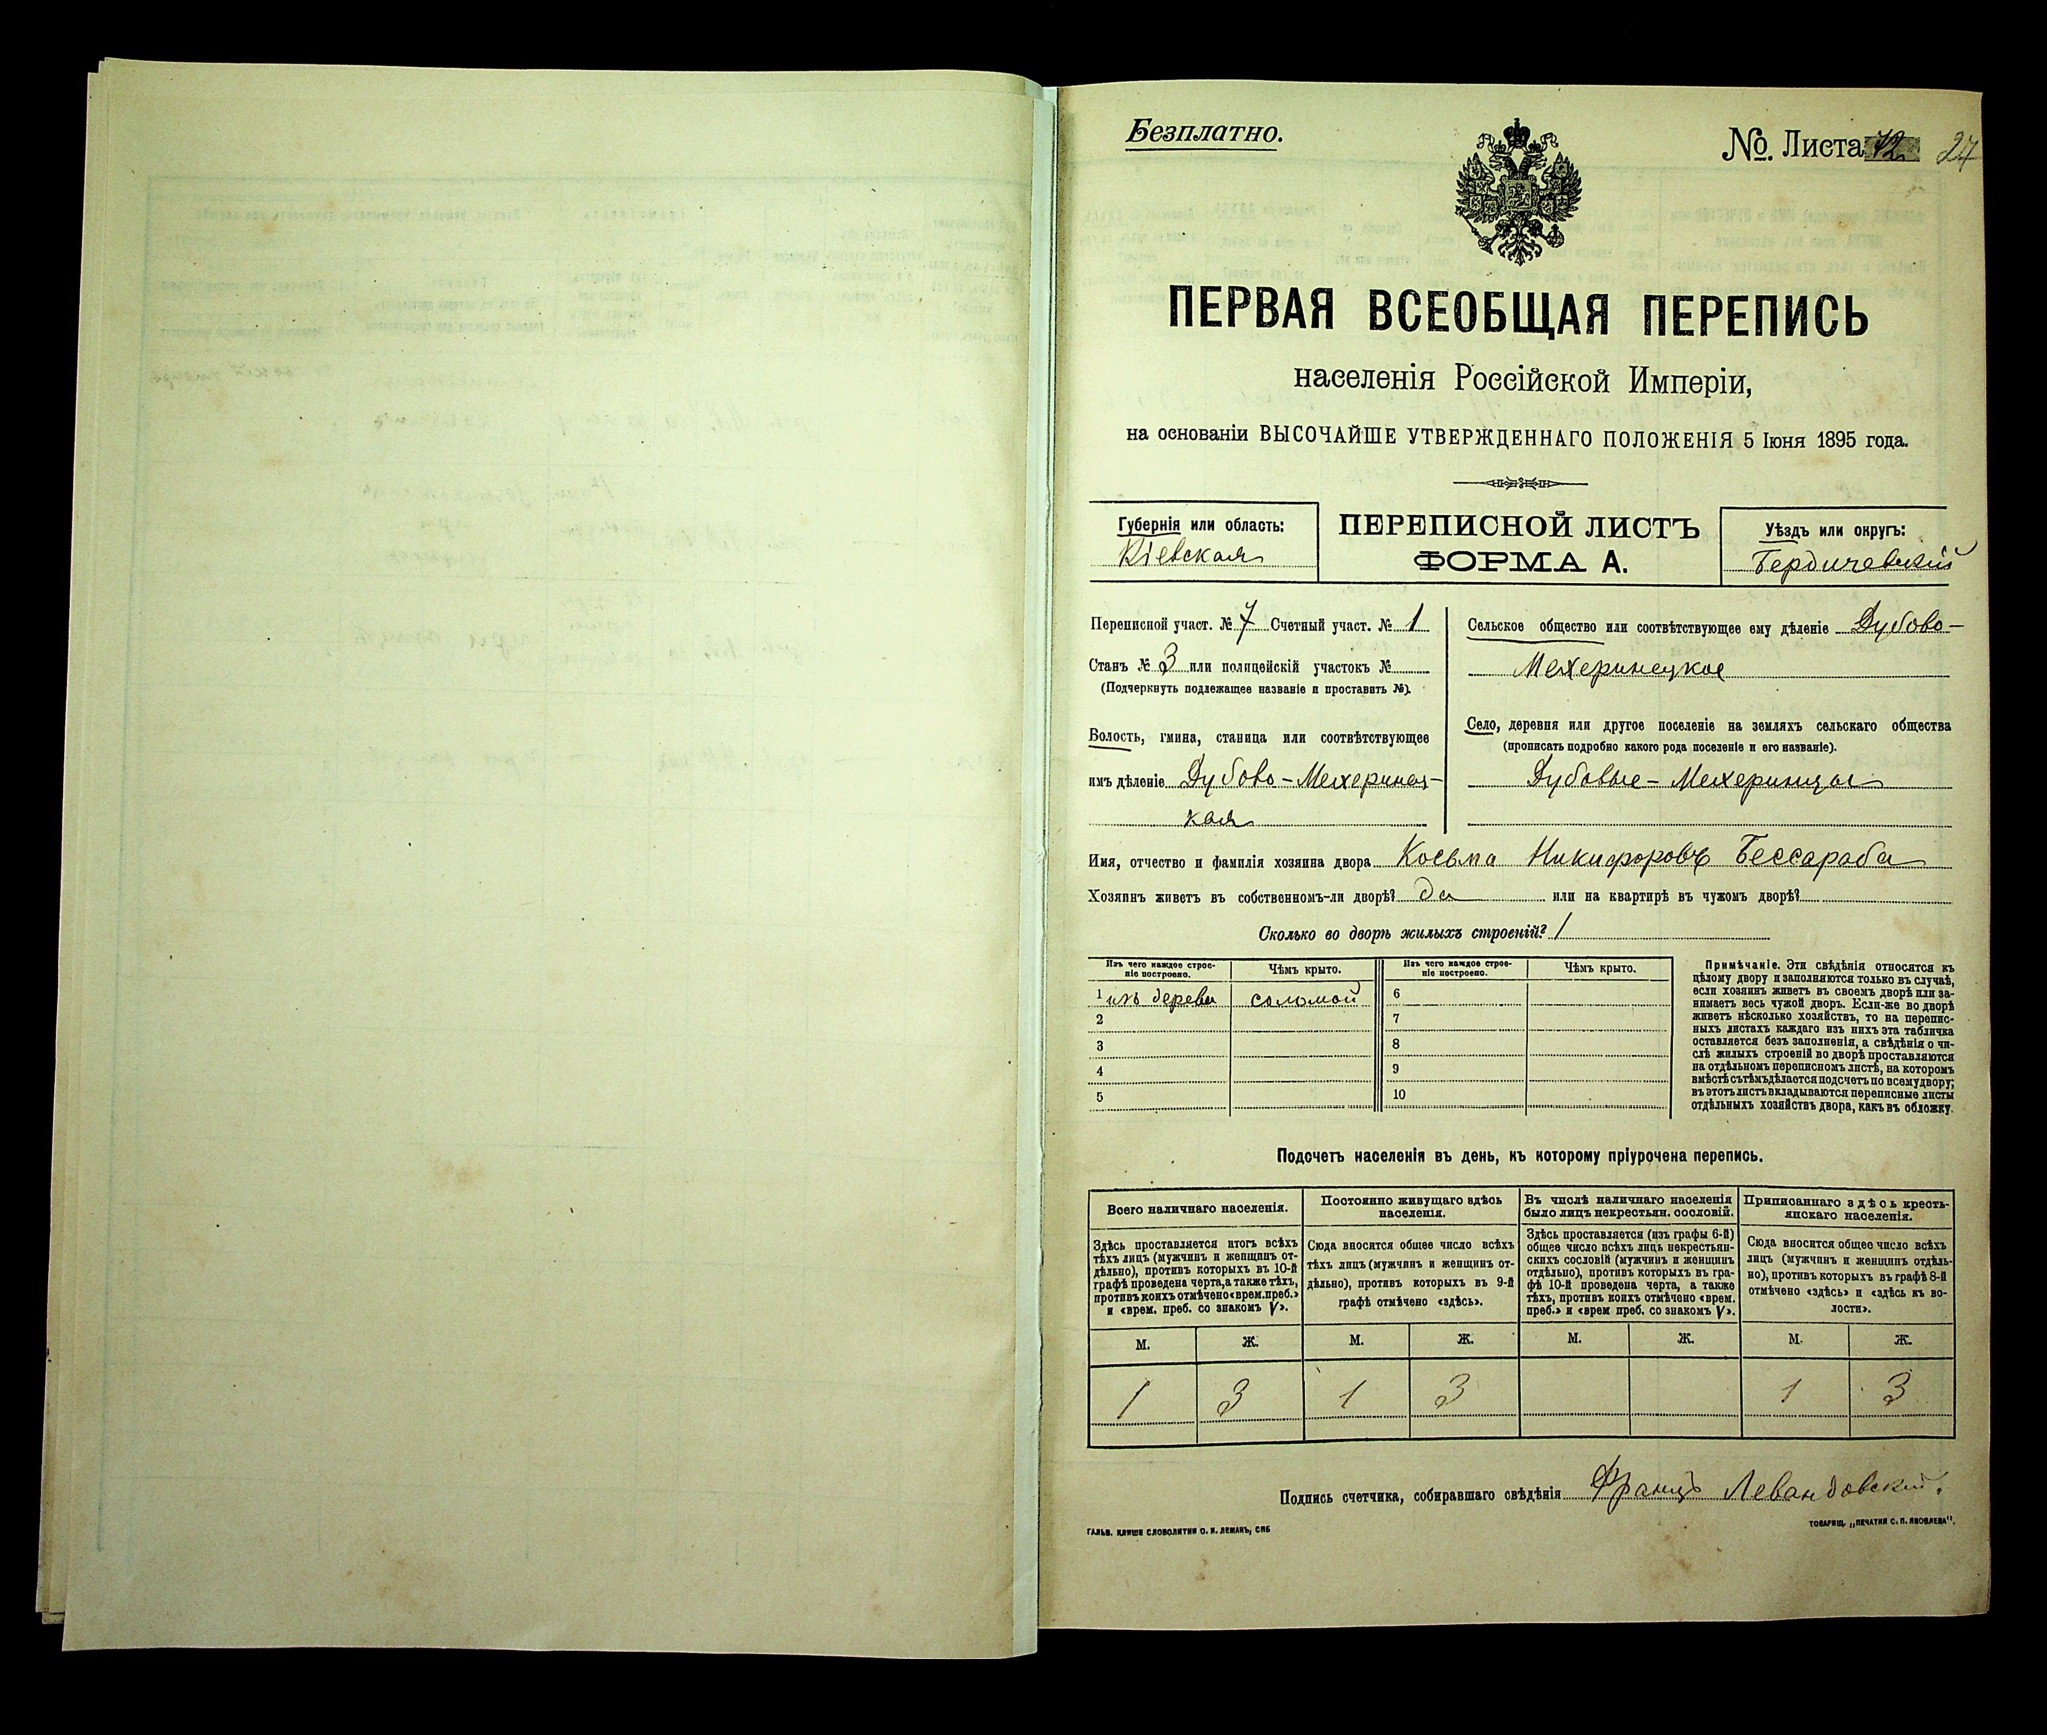 Безплатно.
№. Листа 12 27
ПЕРВАЯ ВСЕОБЩАЯ ПЕРЕПИСЬ
населенія Россійской Имперіи,
на основаніи ВЫСОЧАЙШЕ УТВЕРЖДЕННАГО ПОЛОЖЕНІЯ 5 Іюня 1895 года.
Губернія или область:
Кіевская
ПЕРЕПИСНОЙ ЛИСТЪ
ФОРМА А.
Уѣздъ или округъ:
Бердичевскій
Переписной участ. № 7 Счетный участ. № 1
Станъ № 3 или полицейскій участокъ №
(Подчеркнуть подлежащее названіе и проставить №).
Волость, гмина, станица или соотвѣтствующее
имъ дѣленіе Дубово-Мехеринец-
кая
Сельское общество или соотвѣтствующее ему дѣленіе Дубово-
Мехеринецкое
Село, деревня или другое поселеніе на земляхъ сельскаго общества
(прописать подробно какого рода поселеніе и его названіе).
Дубовые-Мехеринцы
Имя, отчество и фамилія хозяина двора Косьма Никифоровъ Бессараба
Хозяинъ живетъ въ собственномъ-ли дворѣ? да или на квартирѣ въ чужомъ дворѣ?
Сколько во дворѣ жилыхъ строеній? 1
Изъ чего каждое строе-
ніе построено.
Чѣмъ крыто.
Изъ чего каждое строе-
ніе построено.
Чѣмъ крыто.
1 изъ дерева соломой 6
2 7
3 8
4 9
5 10
Примѣчаніе. Эти свѣдѣнія относятся къ
цѣлому двору и заполняются только въ случаѣ,
если хозяинъ живетъ въ своемъ дворѣ или за-
нимаетъ весь чужой дворъ. Если-же во дворѣ
живетъ нѣсколько хозяйствъ, то на перепис-
ныхъ листахъ каждаго изъ нихъ эта табличка
оставляется безъ заполненія, а свѣдѣнія о чи-
слѣ жилыхъ строеній во дворѣ проставляются
на отдѣльномъ переписномъ листѣ, на которомъ
вмѣстѣ съ тѣмъ дѣлается подсчетъ по всему двору;
въ этотъ листъ вкладываются переписные листы
отдѣльныхъ хозяйствъ двора, какъ въ обложку.
Подсчетъ населенія въ день, къ которому пріурочена перепись.
Всего наличнаго населенія.
Здѣсь проставляется итогъ всѣхъ
тѣхъ лицъ (мужчинъ и женщинъ от-
дѣльно), противъ которыхъ въ 10-й
графѣ проведена черта, а также тѣхъ,
противъ коихъ отмѣчено «врем. преб.»
и «врем. преб. со знакомъ V».
Постоянно живущаго здѣсь
населенія.
Сюда вносится общее число всѣхъ
тѣхъ лицъ (мужчинъ и женщинъ от-
дѣльно), противъ которыхъ въ 9-й
графѣ отмѣчено «здѣсь».
Въ числѣ наличнаго населенія
было лицъ некрестьян. сословій.
Здѣсь проставляется (изъ графы 6-й)
общее число всѣхъ лицъ некрестьян-
скихъ сословій (мужчинъ и женщинъ
отдѣльно), противъ которыхъ въ гра-
фѣ 10-й проведена черта, а также
тѣхъ, противъ коихъ отмѣчено «врем.
преб.» и «врем преб. со знакомъ V».
Приписаннаго здѣсь кресть-
янскаго населенія.
Сюда вносится общее число всѣхъ
лицъ (мужчинъ и женщинъ отдѣль-
но), противъ которыхъ въ графѣ 8-й
отмѣчено «здѣсь» и «здѣсь къ во-
лости».
М. Ж. М. Ж. М. Ж. М. Ж.
1 3 1 3 1 3
Подпись счетчика, собиравшаго свѣдѣнія Францъ Левандовскій.
ГАЛЬВ. КЛИШЕ СЛОВОЛИТНИ О. И. ЛЕМАНЪ, СПБ
ТОВАРИЩ. „ПЕЧАТНЯ С. П. ЯКОВЛЕВА".